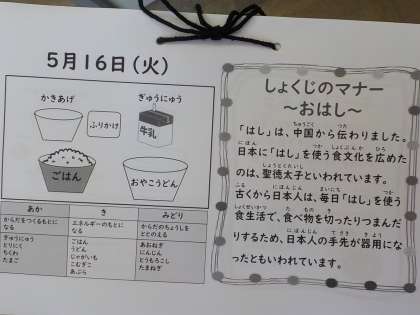 5月16日（火）
かきあげ
ぎゅうにゅう
ふりかけ
牛乳
ごはん
おやこうどん
あか
き
みどり
からだをつくるもとに
なる
エネルギーのもとに
なる
からだのちょうしを
ととのえる
ぎゅうにゅう
とりにく
ちくわ
たまご
ごはん
うどん
じゃがいも
こむぎこ
あぶら
あおねぎ
にんじん
とうもろこし
たまねぎ
しょくじのマナー
～おはし～
「はし」は、中国から伝わりました。
日本に「はし」を使う食文化を広めた
のは、聖徳太子といわれています。
古くから日本人は、毎日「はし」を使う
食生活で、食べ物を切ったりつまんだ
りするため、日本人の手先が器用にな
ったともいわれています。